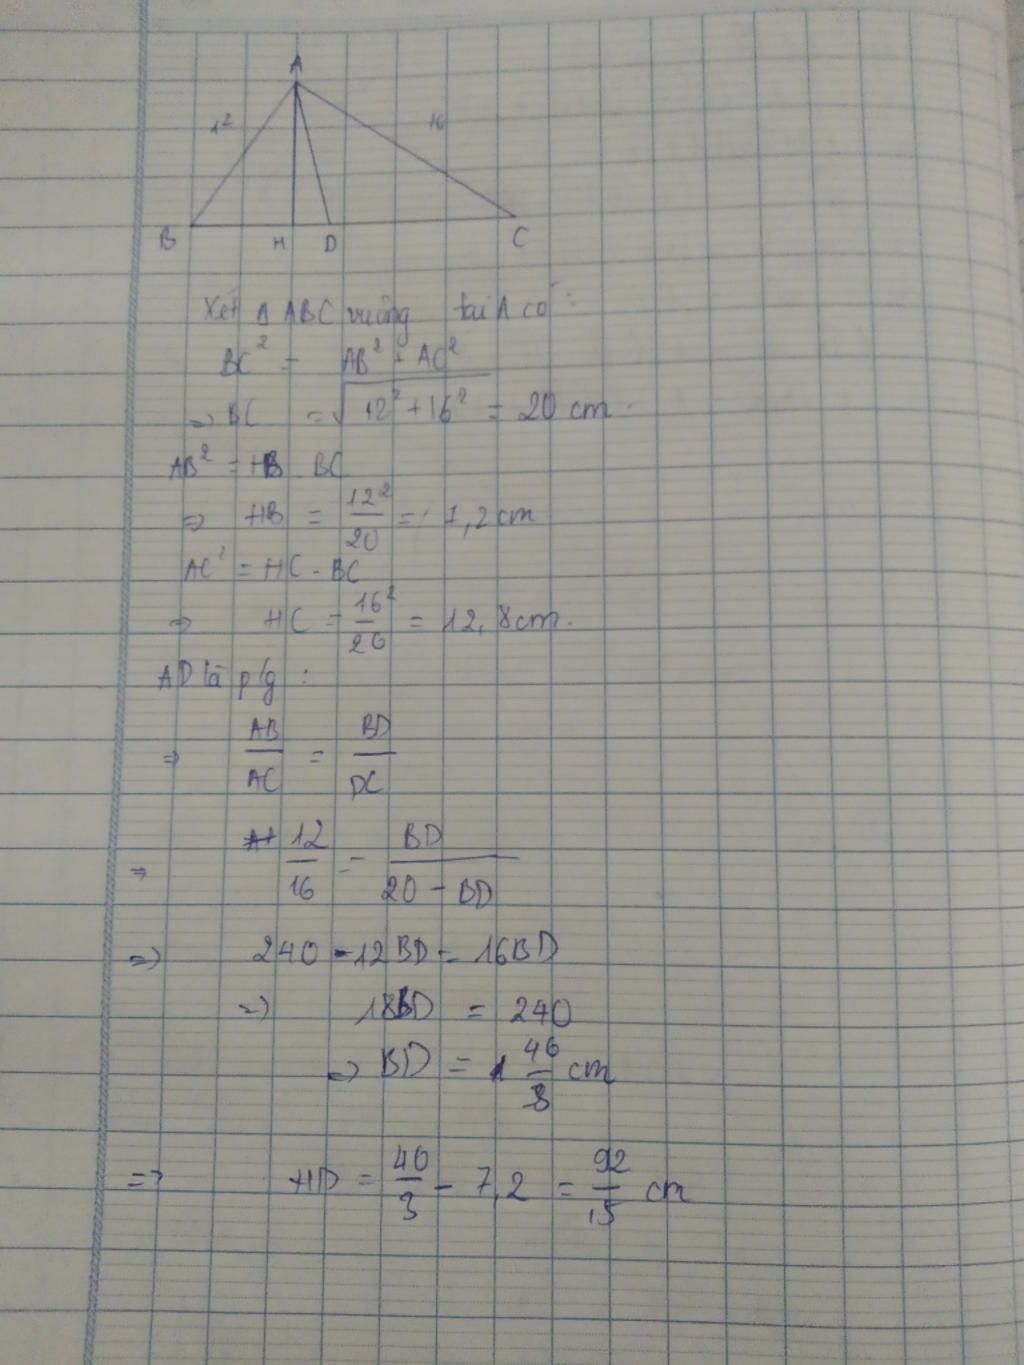 A
12
16
B
H
D
C
Xét Δ ABC vuông tại A có :
BC² = AB² + AC²
⇒ BC = √12² + 16² = 20 cm.
AB² = HB . BC
⇒ HB = 12²/20 = 7,2 cm
AC² = HC . BC
⇒ HC = 16²/20 = 12,8 cm.
AD là p/g :
⇒ AB/AC = BD/DC
⇒ 12/16 = BD/20 - BD
⇒ 240 - 12BD = 16BD
⇒ 18BD = 240
⇒ BD = 40/3 cm
⇒ HD = 40/3 - 7,2 = 92/15 cm